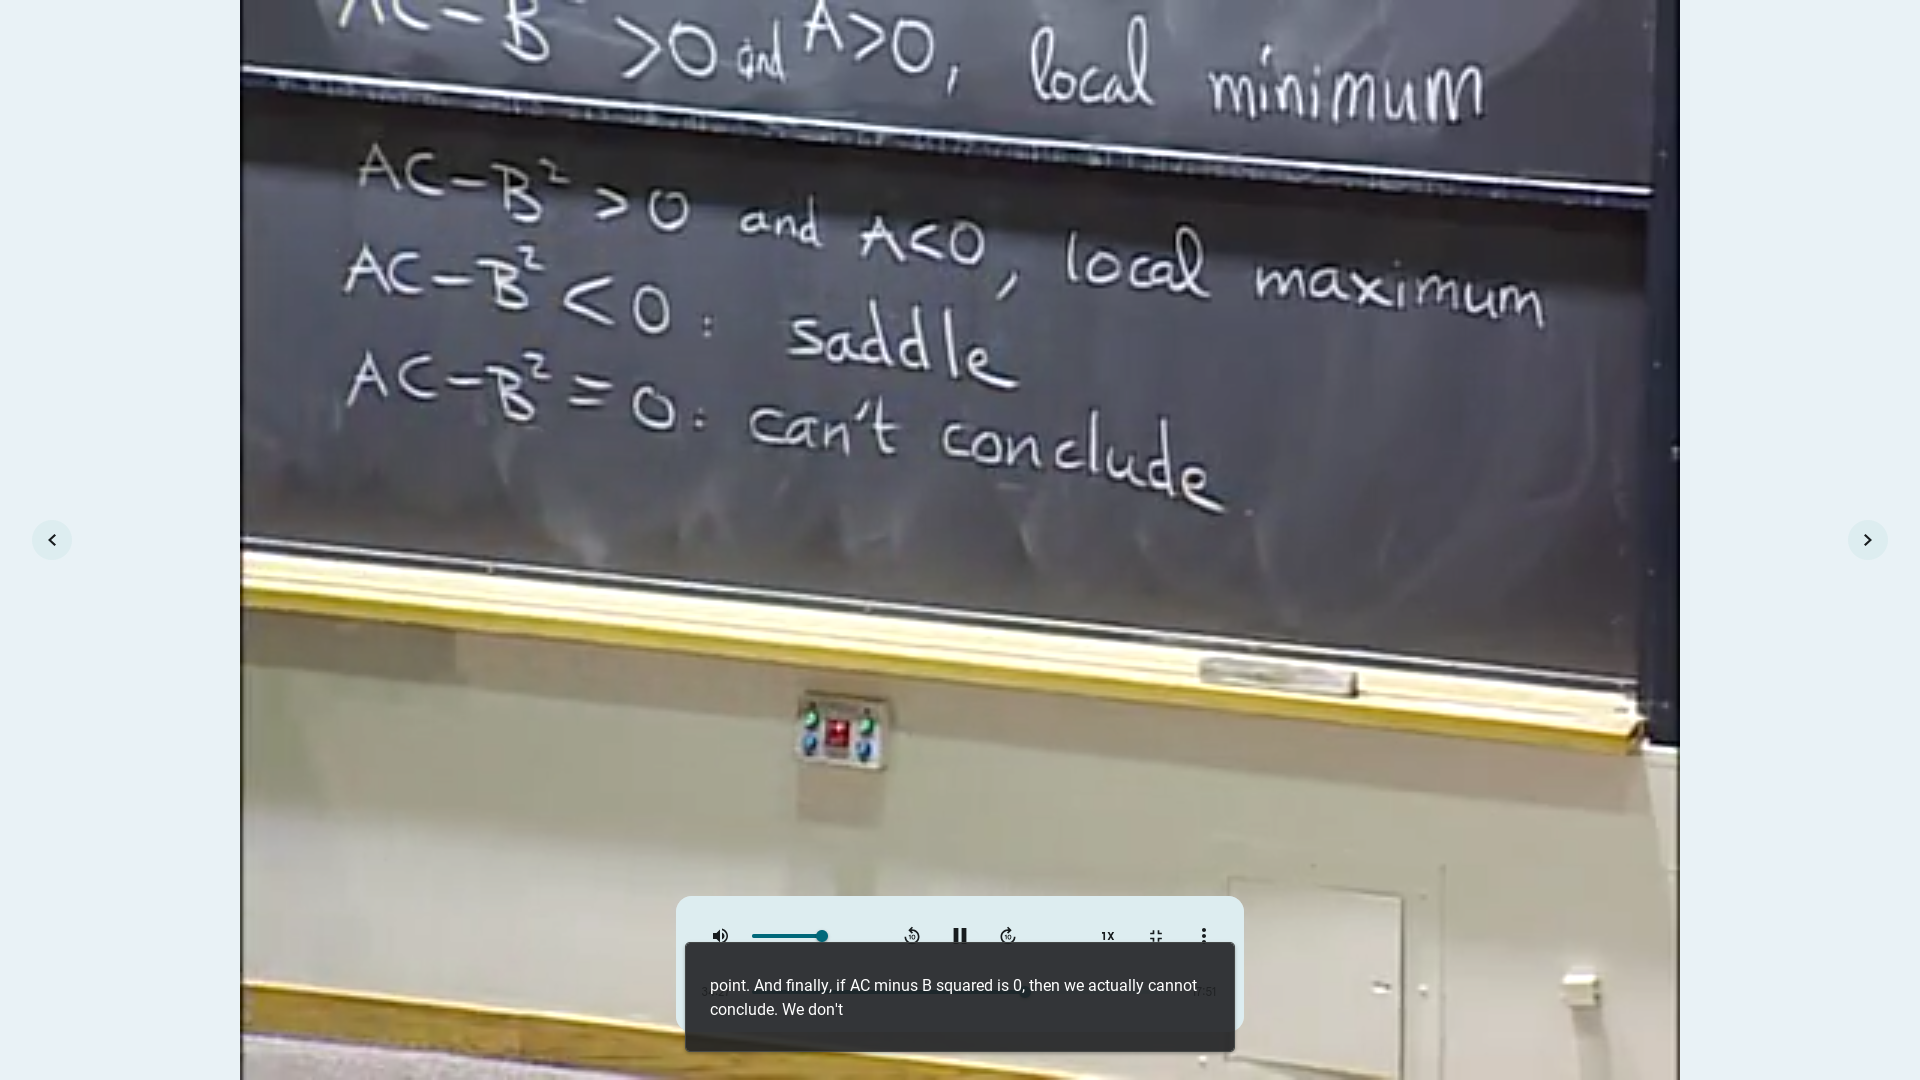 AC-B² >0 and A>0, local minimum
AC-B² >0 and A<0, local maximum
AC-B² <0: saddle
AC-B² = 0: can't conclude
1X
point. And finally, if AC minus B squared is 0, then we actually cannot
conclude. We don't